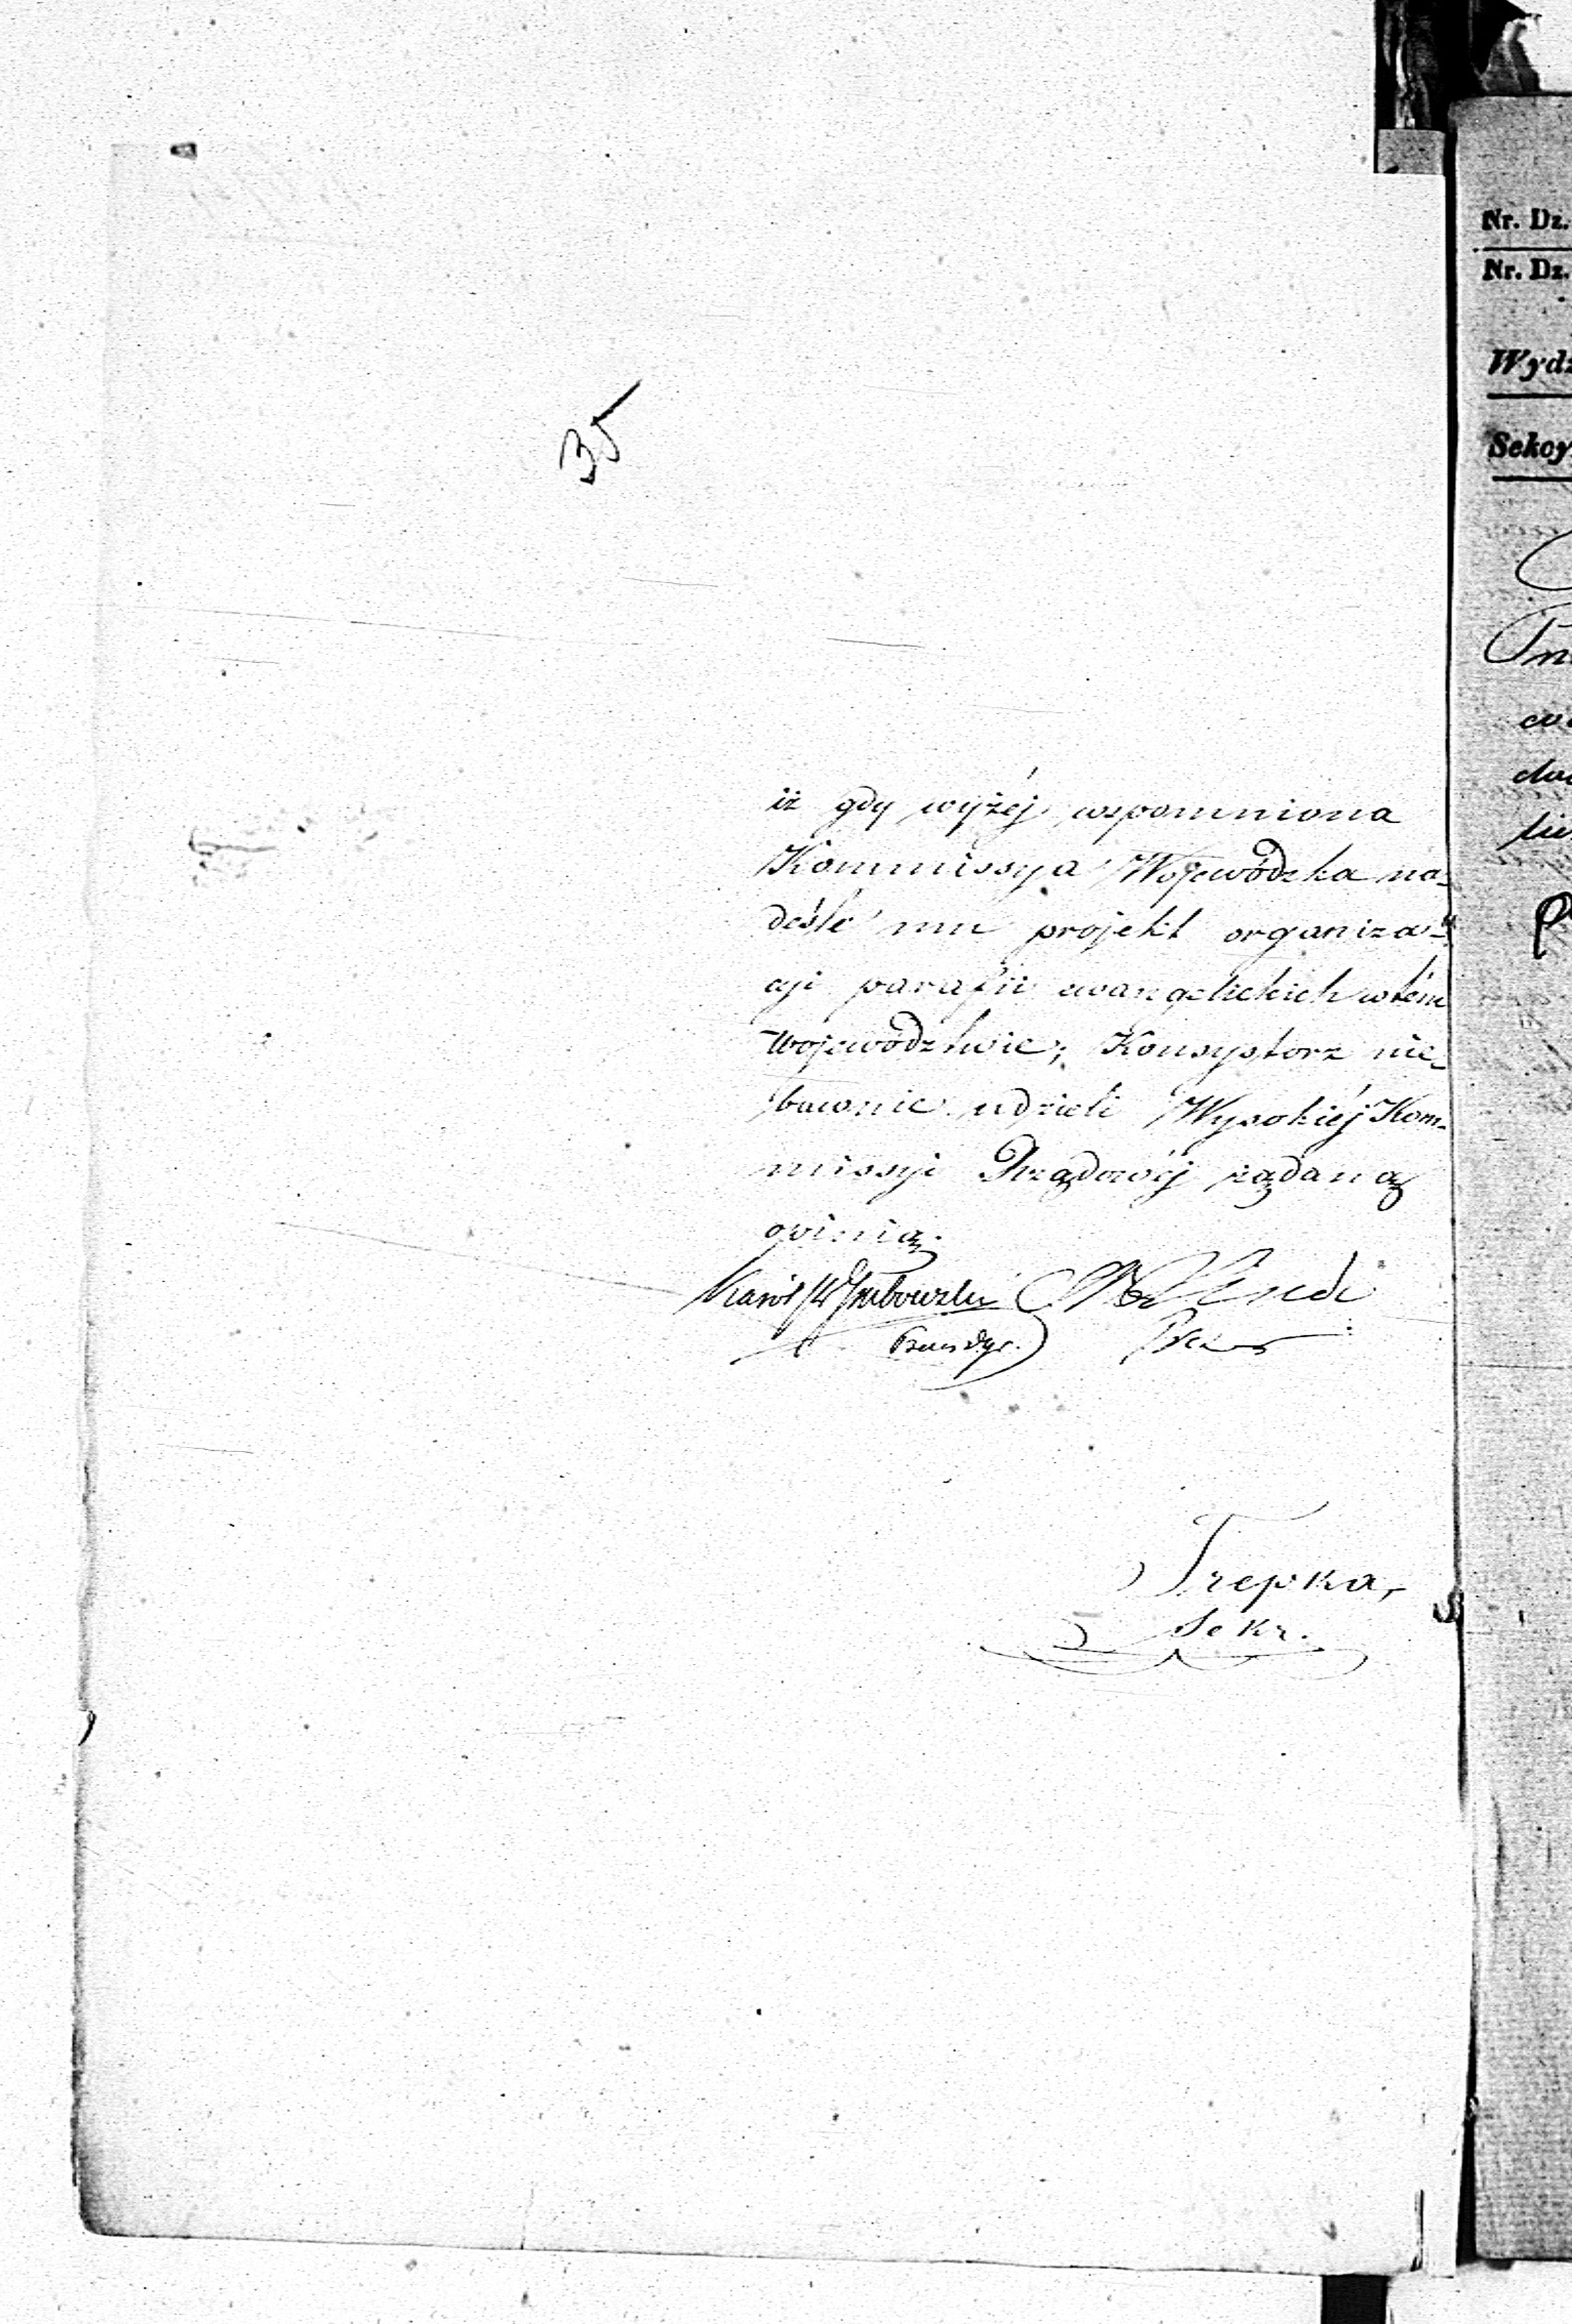 35
iż gdy wyżéj wspomniona
Kommissya Wojewódzka na-
deśle mu projekt organiza-
cyi parafii ewangelickich w tém
Województwie; Konsystorz nie-
bawnie udzieli Wysokiéj Kom-
missyi Rządowéj żądaną
opinią.
Karól
Trepka,
Sekr.
Nr. Dz.
Nr. Dz.
Wydz
Sekcy